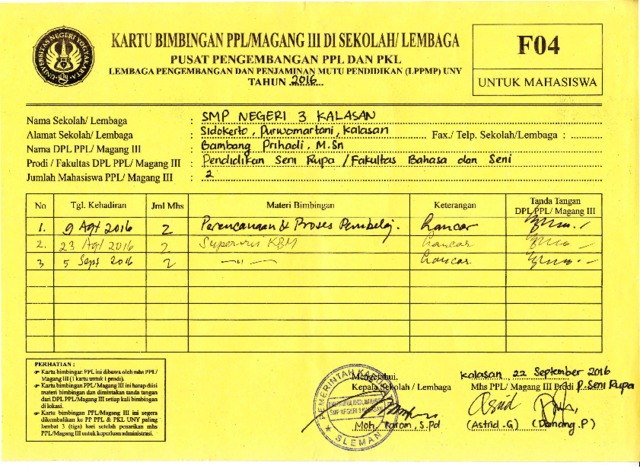 KARTU BIMBINGAN PPL/MAGANG III DI SEKOLAH/ LEMBAGA
PUSAT PENGEMBANGAN PPL DAN PKL
LEMBAGA PENGEMBANGAN DAN PENJAMINAN MUTU PENDIDIKAN (LPPMP) UNY
TAHUN 2016
F04
UNTUK MAHASISWA
UNIVERSITAS NEGERI YOGYAKARTA
Nama Sekolah/ Lembaga : SMP NEGERI 3 KALASAN
Alamat Sekolah/ Lembaga : Sidokerto, Purwomartani, Kalasan Fax./ Telp. Sekolah/Lembaga :
Nama DPL PPL/ Magang III : Bambang Prihadi, M.Sn
Prodi / Fakultas DPL PPL/ Magang III : Pendidikan Seni Rupa / Fakultas Bahasa dan Seni
Jumlah Mahasiswa PPL/ Magang III : 2
No Tgl. Kehadiran Jml Mhs Materi Bimbingan Keterangan Tanda Tangan DPL PPL/ Magang III
1. 9 Agt 2016 2 Perencanaan & Proses Pembelaj. Lancar
2. 23 Agt 2016 2 Supervisi KBM Lancar
3 5 Sept 2016 2 — " — Lancar
PERHATIAN :
Kartu bimbingan PPL ini dibawa oleh mhs PPL/
Magang III (1 kartu untuk 1 prodi).
Kartu bimbingan PPL/ Magang III ini harap diisi
materi bimbingan dan dimintakan tanda tangan
dari DPL PPL/Magang III setiap kali bimbingan
di lokasi.
Kartu bimbingan PPL/Magang III ini segera
dikembalikan ke PP PPL & PKL UNY paling
lambat 3 (tiga) hari setelah penarikan mhs
PPL/Magang III untuk keperluan administrasi.
Mengetahui,
Kepala Sekolah / Lembaga
PEMERINTAH KABUPATEN
SMP NEGERI 3 KALASAN
SLEMAN
S.Pd
Kalasan 22 September 2016
Mhs PPL/ Magang III Prodi P. Seni Rupa
(Astrid.G) (Danang.P)